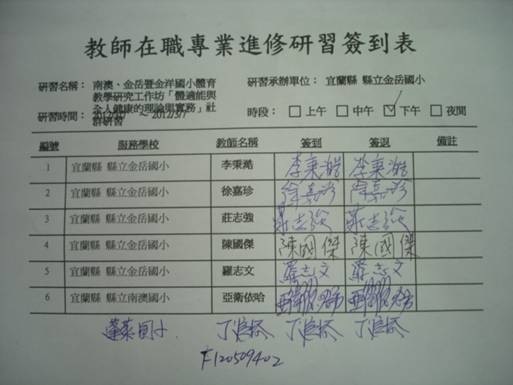 教師在職專業進修研習簽到表
研習名稱： 南澳、金岳暨金洋國小體育
教學研究工作坊「體適能與
全人健康的理論與實務」社
群研習
研習承辦單位： 宜蘭縣 縣立金岳國小
研習時間： ～ 2012/3/7
時段： □ 上午 □ 中午 ☑ 下午 □ 夜間
編號 服務學校 教師名稱 簽到 簽退 備註
1 宜蘭縣 縣立金岳國小 李秉澔 李秉澔 李秉澔
2 宜蘭縣 縣立金岳國小 徐嘉珍 徐嘉珍 徐嘉珍
3 宜蘭縣 縣立金岳國小 莊志強 莊志強 莊志強
4 宜蘭縣 縣立金岳國小 陳國傑 陳國傑 陳國傑
5 宜蘭縣 縣立金岳國小 羅志文 羅志文 羅志文
6 宜蘭縣 縣立南澳國小 亞衛依哈
蓬萊國小